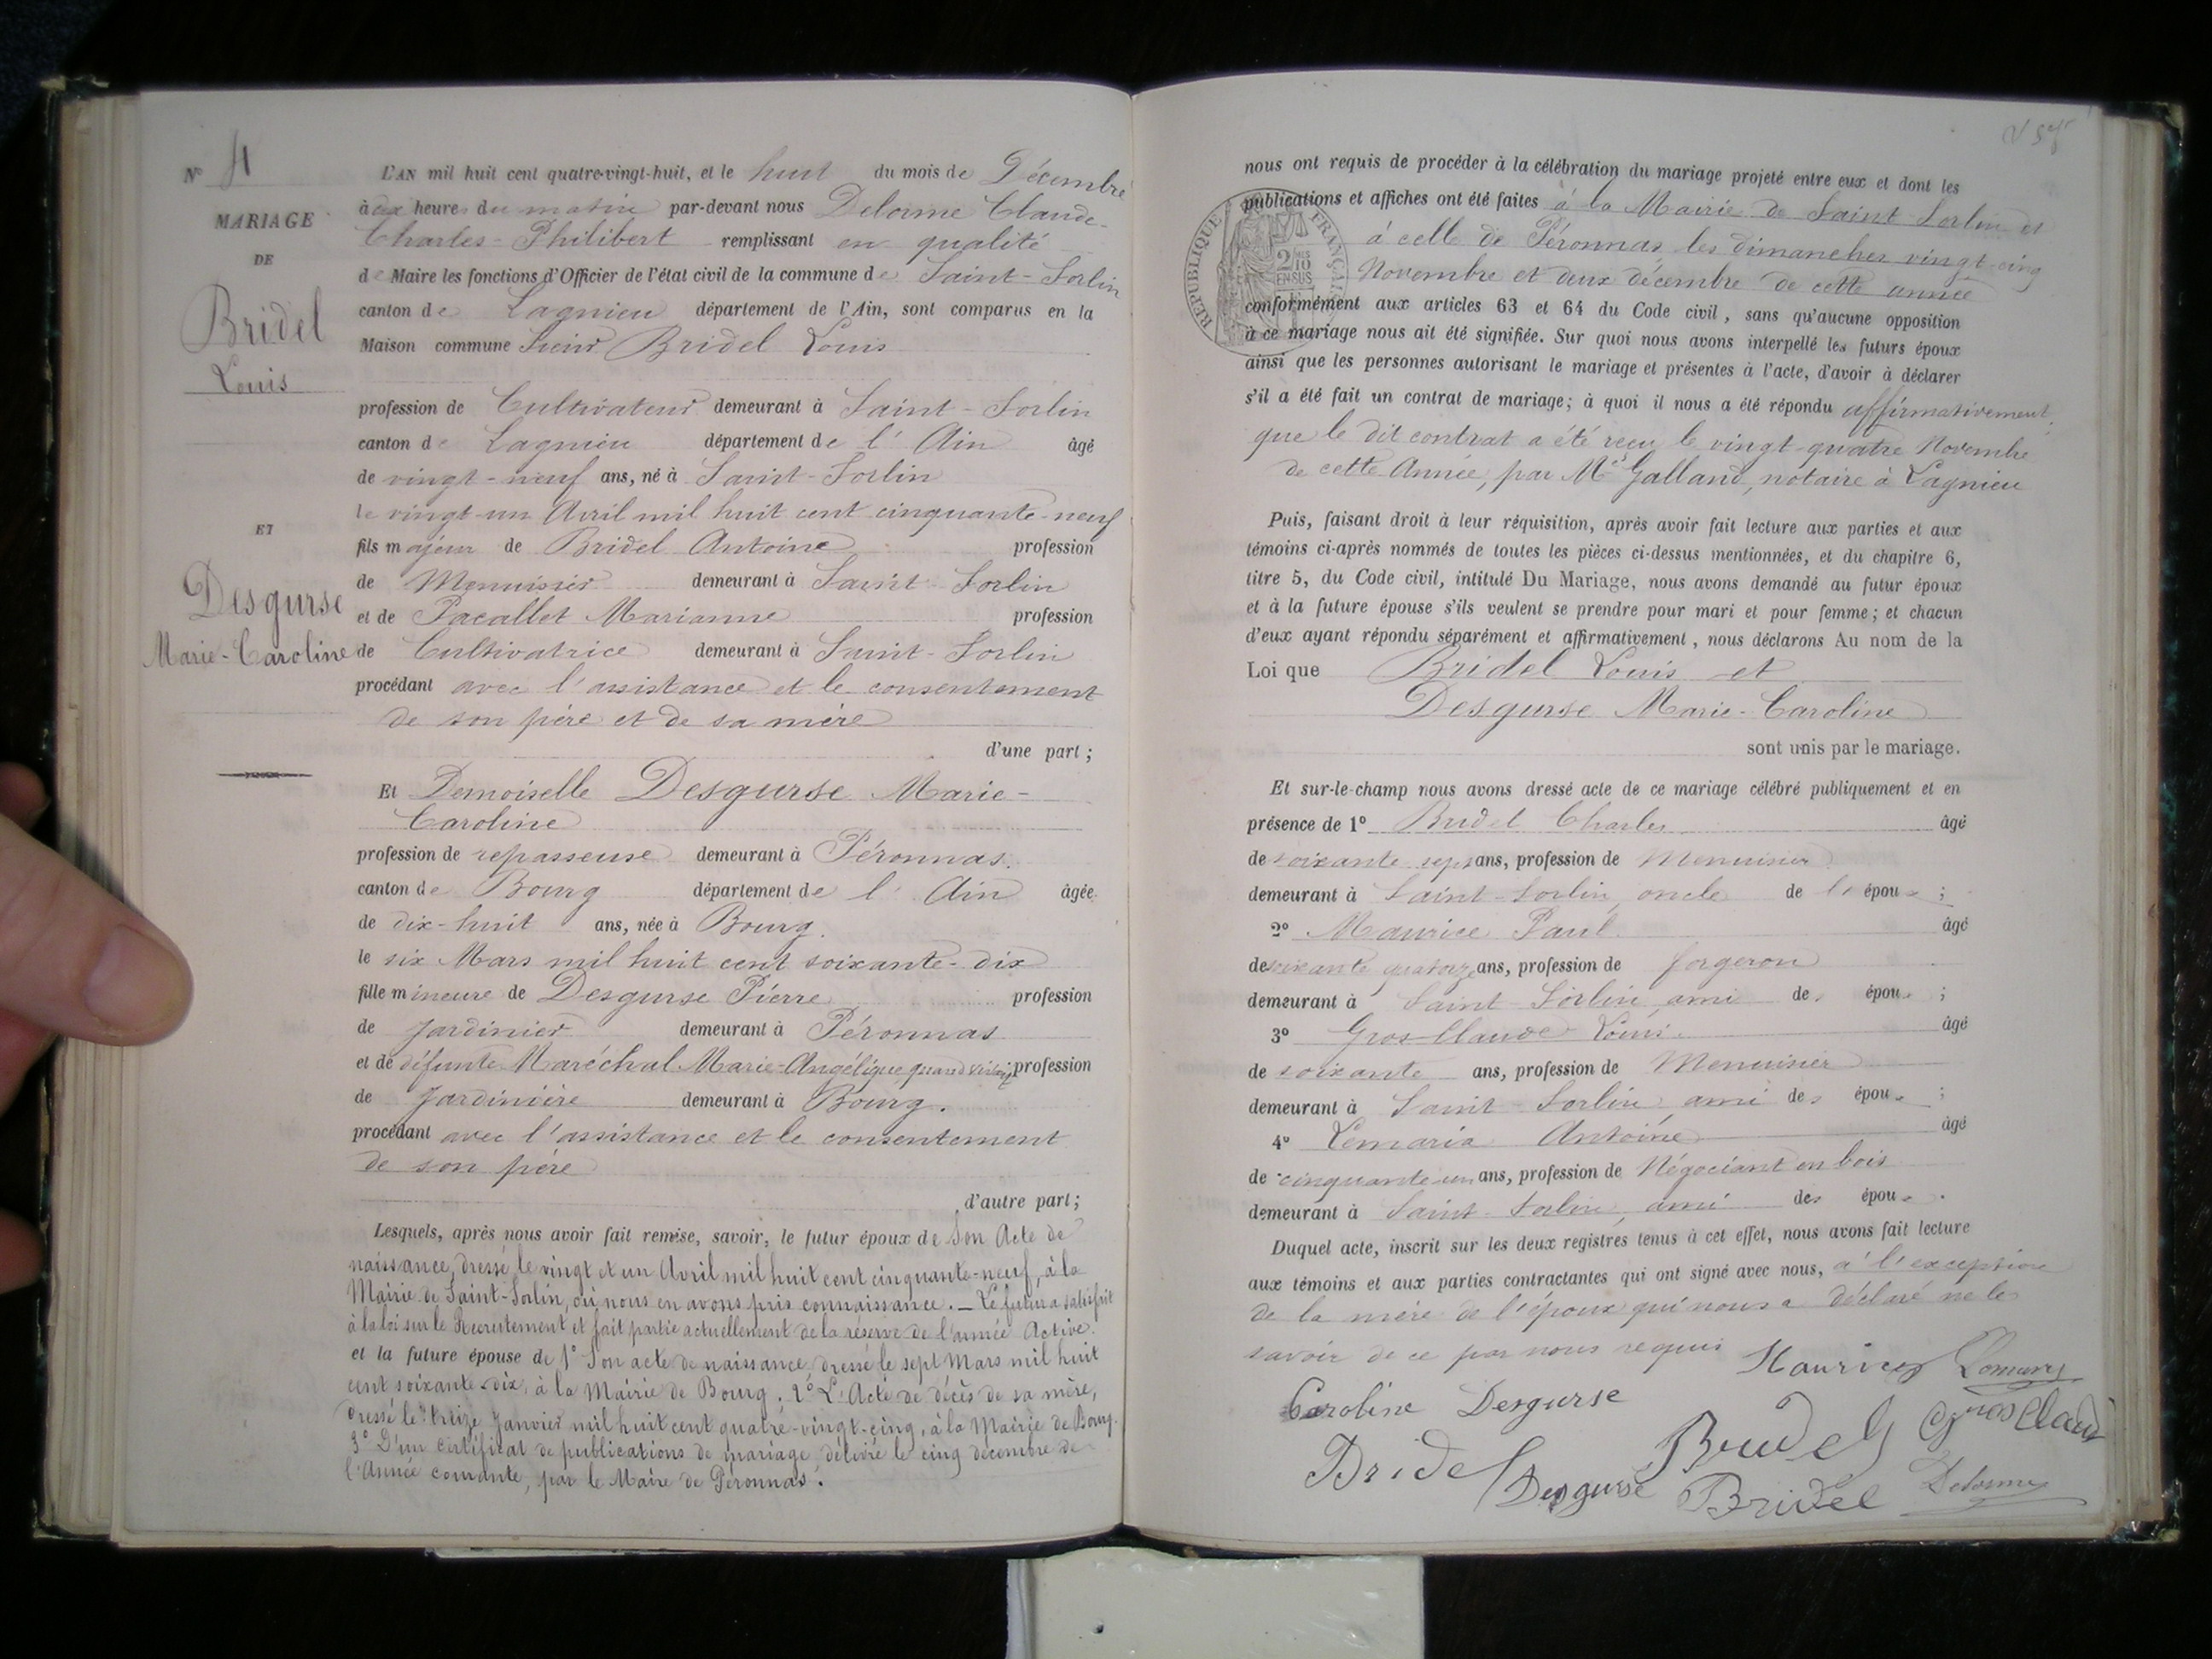 N° 4
MARIAGE
DE
Bridel
Louis
ET
Desgurse
Marie-Caroline
L'AN mil huit cent quatre-vingt-huit, et le huit du mois de Décembre
à dix heures du matin par-devant nous Delorme Claude-
Charles-Philibert remplissant en qualité
de Maire les fonctions d'Officier de l'état civil de la commune de Saint-Sorlin
canton de Lagnieu département de l'Ain, sont comparus en la
Maison commune Sieur Bridel Louis
profession de Cultivateur demeurant à Saint-Sorlin
canton de Lagnieu département de l'Ain âgé
de vingt-neuf ans, né à Saint-Sorlin
le vingt-un Avril mil huit cent cinquante-neuf
fils majeur de Bridel Antoine profession
de Menuisier demeurant à Saint-Sorlin
et de Pacallet Marianne profession
de Cultivatrice demeurant à Saint-Sorlin
procédant avec l'assistance et le consentement
de son père et de sa mère
d'une part ;
Et Demoiselle Desgurse Marie-
Caroline
profession de repasseuse demeurant à Péronnas.
canton de Bourg département de l'Ain âgée
de dix-huit ans, née à Bourg.
le six Mars mil huit cent soixante-dix
fille mineure de Desgurse Pierre profession
de Jardinier demeurant à Péronnas
et de défunte Maréchal Marie-Angélique quand vivait profession
de Jardinière demeurant à Bourg.
procédant avec l'assistance et le consentement
de son père
d'autre part ;
Lesquels, après nous avoir fait remise, savoir, le futur époux de Son Acte de
naissance, dressé le vingt et un Avril mil huit cent cinquante-neuf, à la
Mairie de Saint-Sorlin, où nous en avons pris connaissance. — Le futur a satisfait
à la loi sur le Recrutement et fait partie actuellement de la réserve de l'armée Active.
et la future épouse de 1° Son acte de naissance dressé le sept Mars mil huit
cent soixante-dix, à la Mairie de Bourg. 2° L'Acte de décès de sa mère,
dressé le treize Janvier mil huit cent quatre-vingt-cinq, à la Mairie de Bourg.
3° D'un certificat de publications de mariage, délivré le cinq décembre de
l'Année courante, par le Maire de Péronnas.
nous ont requis de procéder à la célébration du mariage projeté entre eux et dont les
publications et affiches ont été faites à la Mairie de Saint-Sorlin et
à celle de Péronnas, les dimanches vingt-cinq
Novembre et deux décembre de cette année
RÉPUBLIQUE FRANÇAISE
2 DES 10 EN SUS
conformément aux articles 63 et 64 du Code civil, sans qu'aucune opposition
à ce mariage nous ait été signifiée. Sur quoi nous avons interpellé les futurs époux
ainsi que les personnes autorisant le mariage et présentes à l'acte, d'avoir à déclarer
s'il a été fait un contrat de mariage; à quoi il nous a été répondu affirmativement,
que le dit contrat a été reçu le vingt-quatre Novembre
de cette Année, par Me Galland, notaire à Lagnieu
Puis, faisant droit à leur réquisition, après avoir fait lecture aux parties et aux
témoins ci-après nommés de toutes les pièces ci-dessus mentionnées, et du chapitre 6,
titre 5, du Code civil, intitulé Du Mariage, nous avons demandé au futur époux
et à la future épouse s'ils veulent se prendre pour mari et pour femme; et chacun
d'eux ayant répondu séparément et affirmativement, nous déclarons Au nom de la
Loi que Bridel Louis et
Desgurse Marie-Caroline
sont unis par le mariage.
Et sur-le-champ nous avons dressé acte de ce mariage célébré publiquement et en
présence de 1° Bridel Charles âgé
de soixante sept ans, profession de Menuisier
demeurant à Saint-Sorlin, oncle de l'époux ;
2° Maurice Paul âgé
de soixante quatorze ans, profession de forgeron
demeurant à Saint-Sorlin, ami des époux ;
3° Gros-Claude Louis âgé
de soixante ans, profession de Menuisier
demeurant à Saint-Sorlin, ami des époux ;
4° Lemaria Antoine âgé
de cinquante-un ans, profession de Négociant en bois
demeurant à Saint-Sorlin, ami des époux.
Duquel acte, inscrit sur les deux registres tenus à cet effet, nous avons fait lecture
aux témoins et aux parties contractantes qui ont signé avec nous, à l'exception
de la mère de l'époux qui nous a déclaré ne le
savoir de ce par nous requis
Maurice
Caroline Desgurse
Bridel Gros Claude
Bridel Desgurse Bridel Delorme